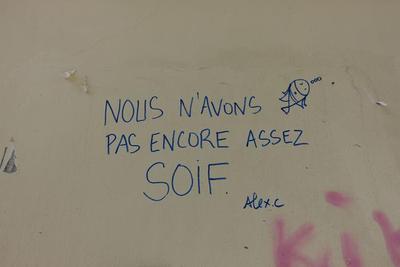 NOUS N'AVONS
PAS ENCORE ASSEZ
SOIF.
Alex.C